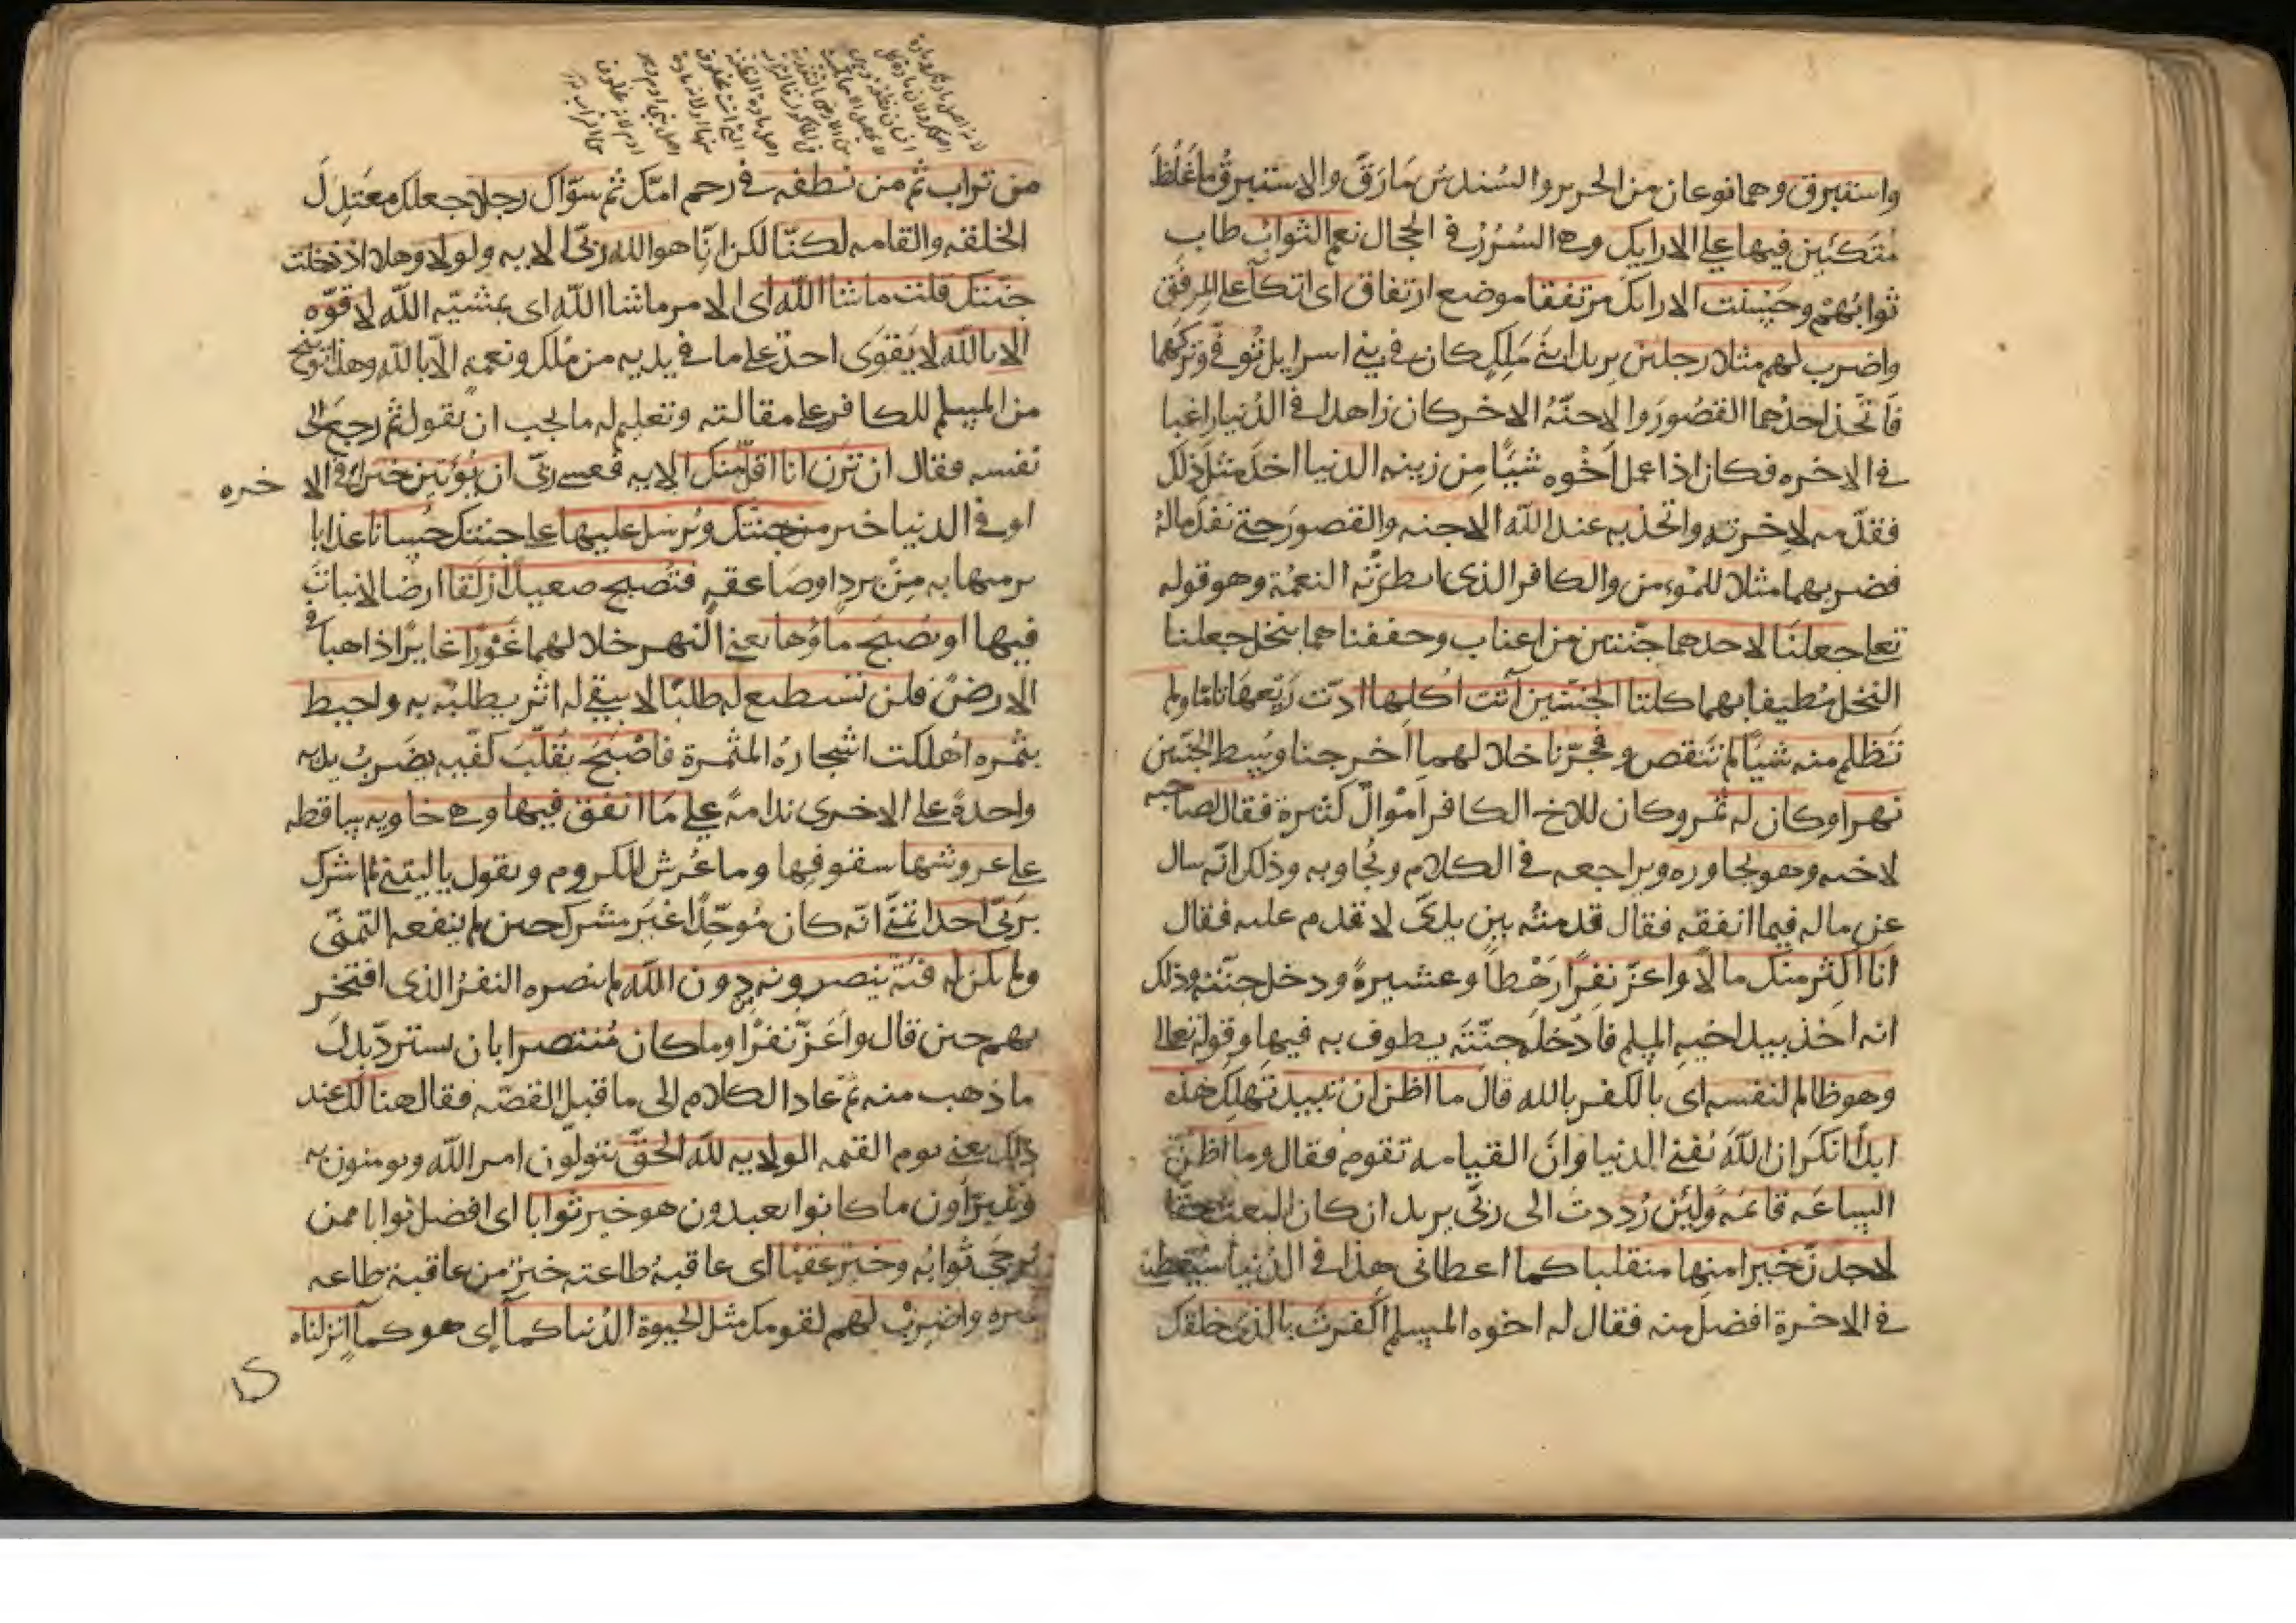 واستبرق وهما نوعان من الحرير والسندس مَا رَقَّ والاستبرق ما غَلُظَ
مُتَكئين فيها على الارايك وهى السُرُرُ فى الحجال نعم الثواب طاب
ثوابُهُمْ وحَسُنَت الارايك مرتفقا موضع ارتفاق اى اتكآ على المِرفَق
واضرب لهم مثلا رجلين يريد ابنَى مَلِكٍ كان فى بنى اسرايل تُوُفى وتركهما
فاتّخذ احدُهما القصُورَ والاجنّةَ والاخر كان زاهدا فى الدُنيا راغبا
فى الاخره فكان اذا عمل اَخُوه شيًا من زينه الدنيا اخذ مثل ذلك
فقدّمه لاخرته واتخذ به عند الله الاجنه والقصورَ حتى نفد مالهُ
فضربهما مثلا للمُومن والكافر الذى ابطرَتْه النعمَة وهو قوله
تعا جعلنا لاحدهما جنّتين من اعناب وحففناهما بنخل جعلنا
النخل مُطيفا بهما كلتا الجنتين آتت اُكلها ادّت رَيْعهَا تامّا ولم
تَظلم منه شيًا لم تنقص وفجّرنا خلالهما اخرجنا وسط الجنتين
نهرا وكان له ثمر وكان للاخ الكافر اَمْوالٌ كثيرة فقال لصاحبه
لاخيه وهو يحاوره ويراجعه فى الكلام ويُجاوبه وذلك انّه سال
عن ماله فيما انفقه فقال قدمتُه بين يدىَّ لاقدم عليه فقال
اَنا اكثر منك مالًا واعزّ نفرًا رَهْطاً وعشيرةً ودخل جنّتهُ وذلك
انه اخذ بيد اخيه المسلم فادْخله جنّتَه يطوف به فيها وقوله تعالى
وهو ظالم لنفسه اى بالكفر بالله قال ما اظن ان تبيد تَهلِك هذه
ابدًا انكر ان اللّهَ يُفنى الدنيا وانَّ القيامه تقوم فقال وما اظنّ
الساعَه قائمَهً ولَئِن رُددتُ الى ربّى يريد ان كان البعث حقّا
لاجدنّ خيرا منها منقلبا كما اعطانى هذا فى الدُنيا سيُعطينى
فى الاخرة افضل منه فقال له اخوه المسلم اكفرتَ بالذى خلقك
من تراب ثم من نطفه فى رحم امّك ثم سوّاك رجلا جعلك معتدلَ
الخلقه والقامه لكنّا لكن انَا هو الله ربّى الايه ولولا وهلا اذ دخلت
جنتك قلت ما شا اللّه اى الامر ما شا اللّه اى بمشيّه اللّه لا قوّه
الا باللّه لا يَقوَى احدٌ على ما فى يديه من مُلك ونعمه الّا باللّه وهذا توبيخ
من المسلم للكافر على مقالته وتعليم له ما يجب ان يقول ثم رجعَ الى
نفسه فقال ان تَرَن انا اقلّ منك الايه فعسى ربّى ان يؤتين خيرا فى الاخره
او فى الدنيا خير من جنتك ويُرسل عليها على جنتك حُسبانا عذابا
يرميها به مِنْ بردٍ اوصَاعقهٍ فتصبح صعيدًا زلَقا ارضا لا نباتَ
فيها او يصبحَ ماؤها يعنى النهر خلالهما غَوْرًا غايرًا ذاهبا فى
الارضِ فلن تستطيع له طلبًا لا يبقى له اثر يطلبه به واحيط
بثمره اُهلكت اشجارهُ المثمرة فاصْبح يقلّب كفّيه يضربُ يده
واحدةً على الاخرى ندامةً على مَا انفق فيها وهى خاويه ساقطه
على عروشها سقوفها وما عُرش للكروم ويقول يا ليتنى لم اشرك
بربّى احدا تمنّى انّه كان مُوحّدًا غيرَ مشرك حين لم ينفعه التمنّى
ولم تكن له فئةٌ ينصرونه من دون اللّه لم ينصره النفرُ الذى افتخر
بهم حين قال وَاَعَزّ نفرًا وما كان مُنتصرا بان يستردّ بدلَ
ما ذهب منه ثم عاد الكلام الى ما قبل القصّه فقال هنالك عند
ذلك يعنى يوم القيمه الولايه للّه الحقّ يتولّون امر اللّه ويومنون به
ويتبرّاون مما كانوا يعبدون هو خير ثوابا اى افضل ثوابا ممن
يُرجَى ثوابُه وخيرٌ عقبًا اى عاقبةُ طاعته خيرٌ من عاقبة طاعه
غيره واضربْ لهم لقومك مثل الحيوة الدُنيا كمآ اى هو كمآ انزلناه